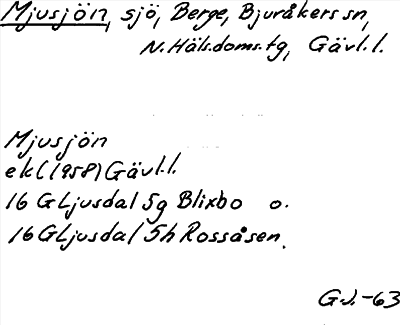 Mjusjön, sjö, Berge, Bjuråkers sn,
N. Häls. doms. tg, Gävl. l.
Mjusjön
ek (1958) Gävl. l.
16 G Ljusdal 5g Blixbo o.
16 G Ljusdal 5h Rossåsen.
G.J. -63